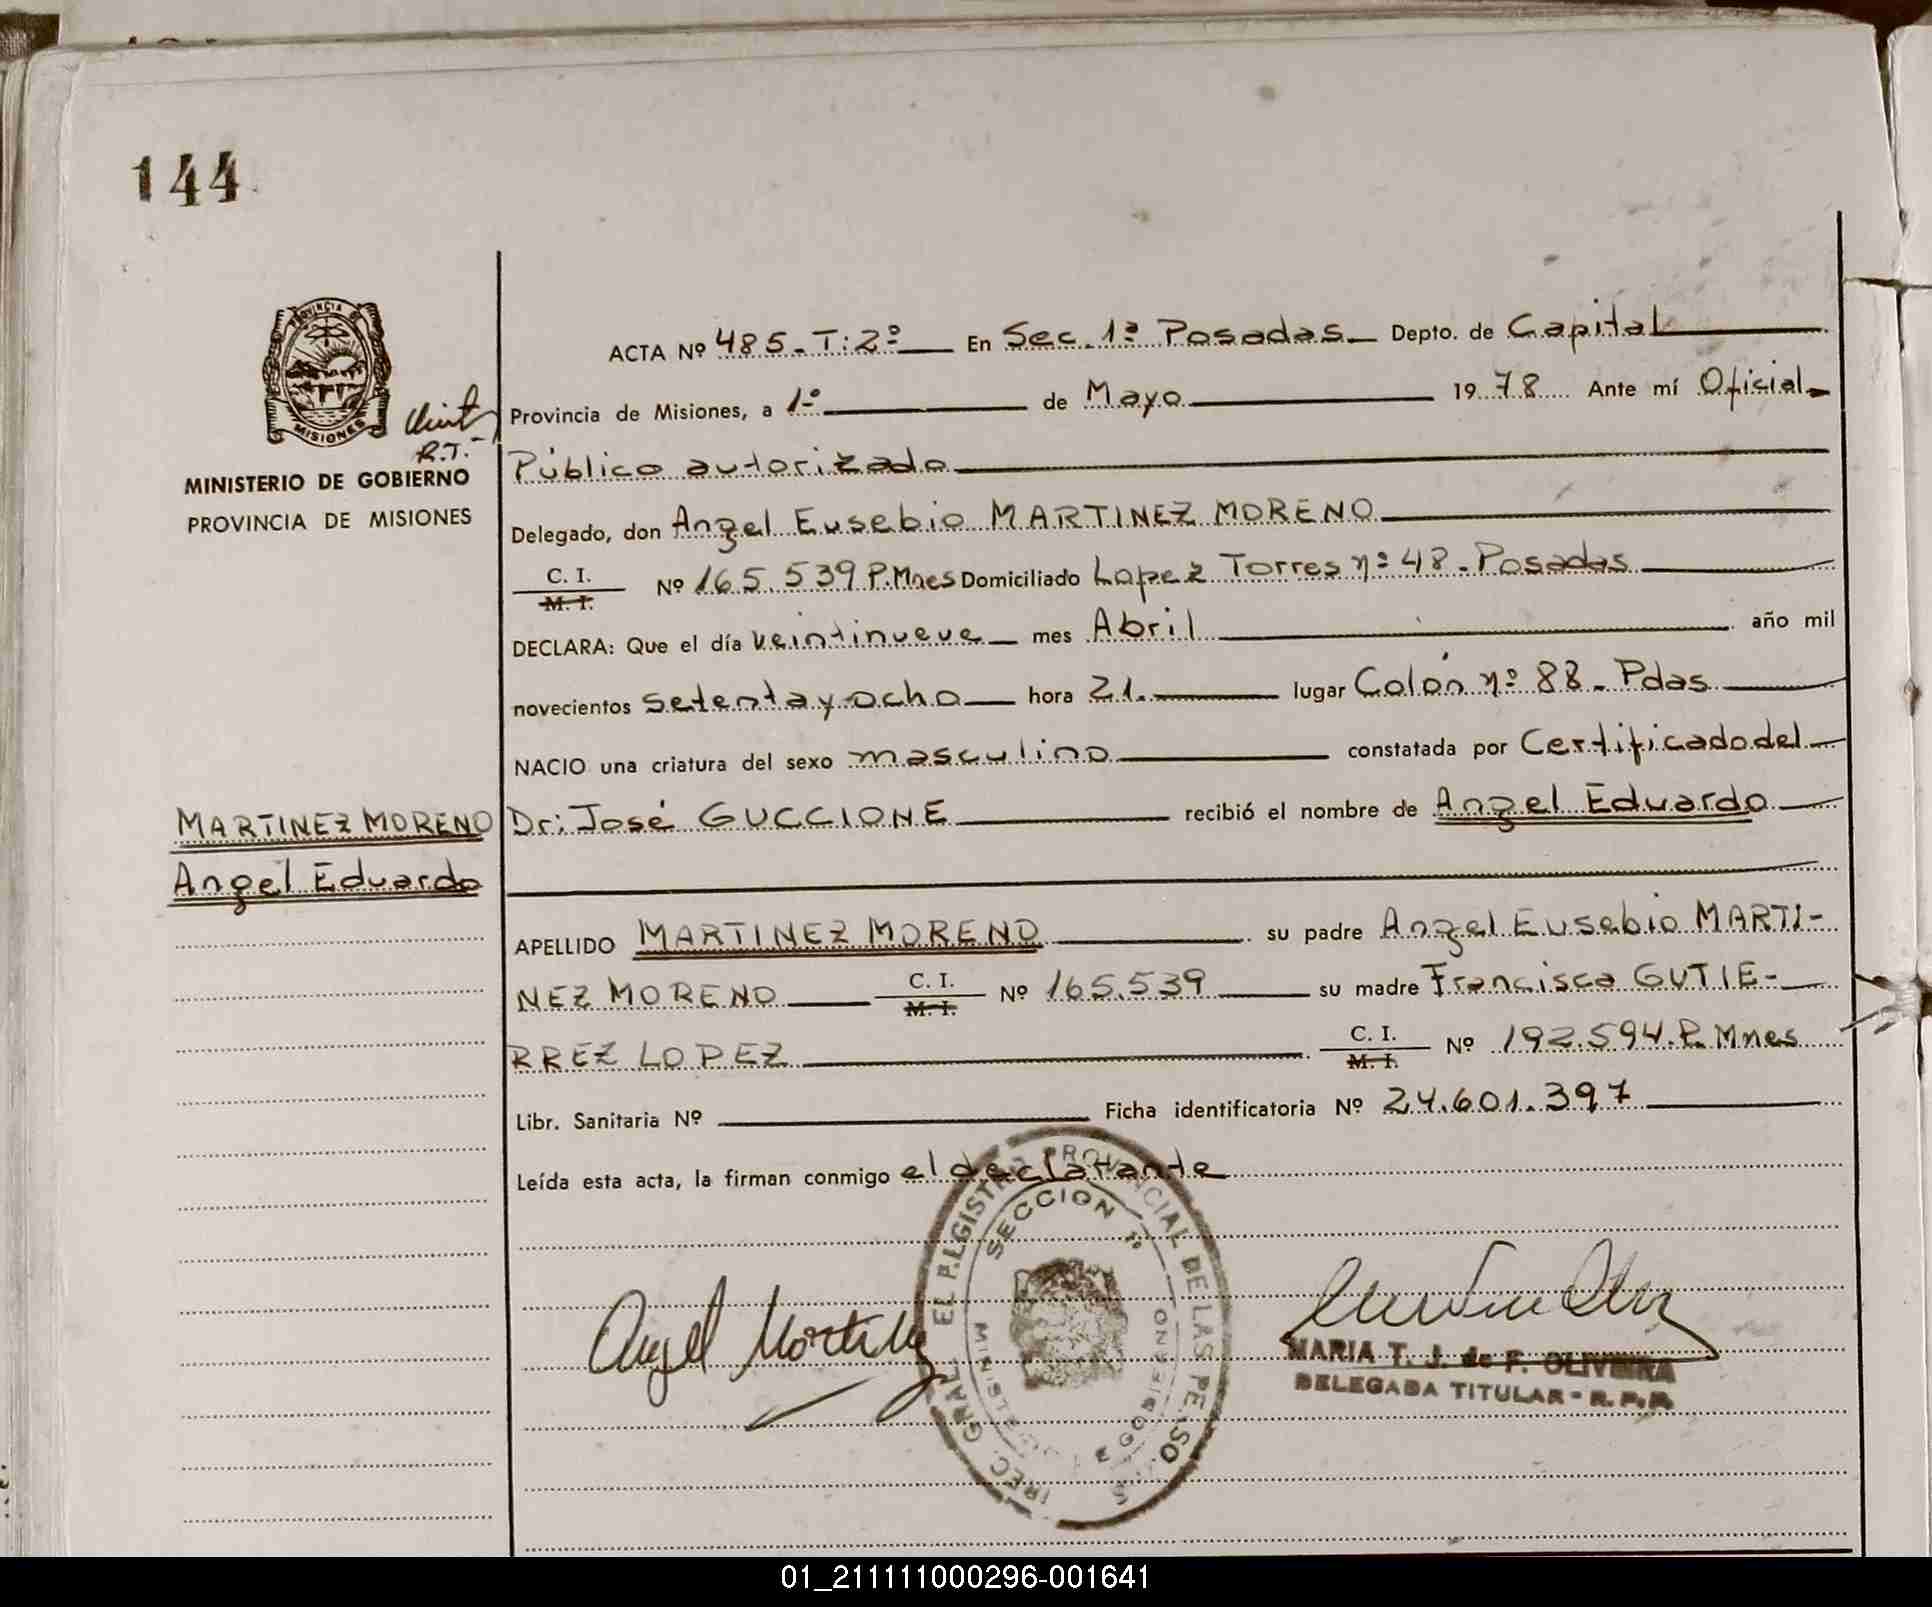 144
PROVINCIA DE
MISIONES
R.T.
MINISTERIO DE GOBIERNO
PROVINCIA DE MISIONES
ACTA Nº 485-T:2º En Sec. 1ª Posadas Depto. de Capital
Provincia de Misiones, a 1º de Mayo 1978 Ante mí Oficial
Público autorizado
Delegado, don Angel Eusebio MARTINEZ MORENO
C. I. M. I. Nº 165.539 P.Mnes Domiciliado Lopez Torres nº 48 - Posadas
DECLARA: Que el día veintinueve mes Abril año mil
novecientos setenta y ocho hora 21. lugar Colón nº 88 - Pdas
NACIO una criatura del sexo masculino constatada por Certificado del
MARTINEZ MORENO Dr: José GUCCIONE recibió el nombre de Angel Eduardo
Angel Eduardo
APELLIDO MARTINEZ MORENO su padre Angel Eusebio MARTI-
NEZ MORENO C. I. M. I. Nº 165.539 su madre Francisca GUTIE-
RREZ LOPEZ C. I. M. I. Nº 192.594.P. Mnes
Libr. Sanitaria Nº Ficha identificatoria Nº 24.601.397
Leída esta acta, la firman conmigo el declarante
SECCION 1ª
Angel Martinez
MARIA T. J. de F. OLIVEIRA
DELEGADA TITULAR - R.P.P.
01_211111000296-001641